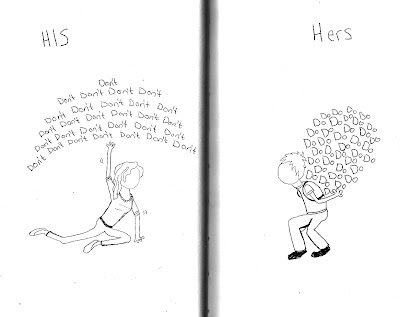 HIS
Don't
Don't Don't Don't Don't
Don't Don't Don't Don't Don't
Don't Don't Don't Don't Don't Don't
Don't Don't Don't Don't Don't Don't
Don't Don't Don't Don't Don't Don't Don't
Hers
Do Do Do
Do Do Do Do
Do Do Do Do Do
Do Do Do Do Do
Do Do Do Do Do
Do Do Do Do Do
Do Do Do Do
Do Do Do
Do Do